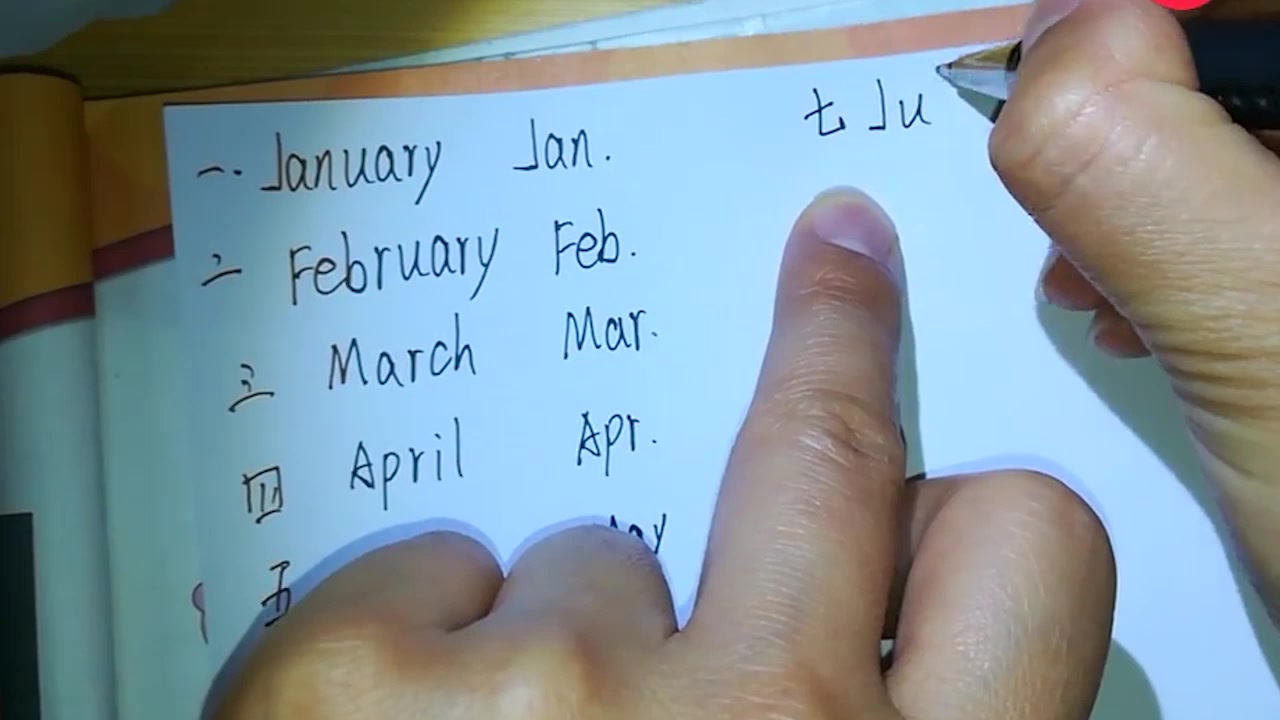 一. January Jan.
二 February Feb.
三 March Mar.
四 April Apr.
五
七 Ju